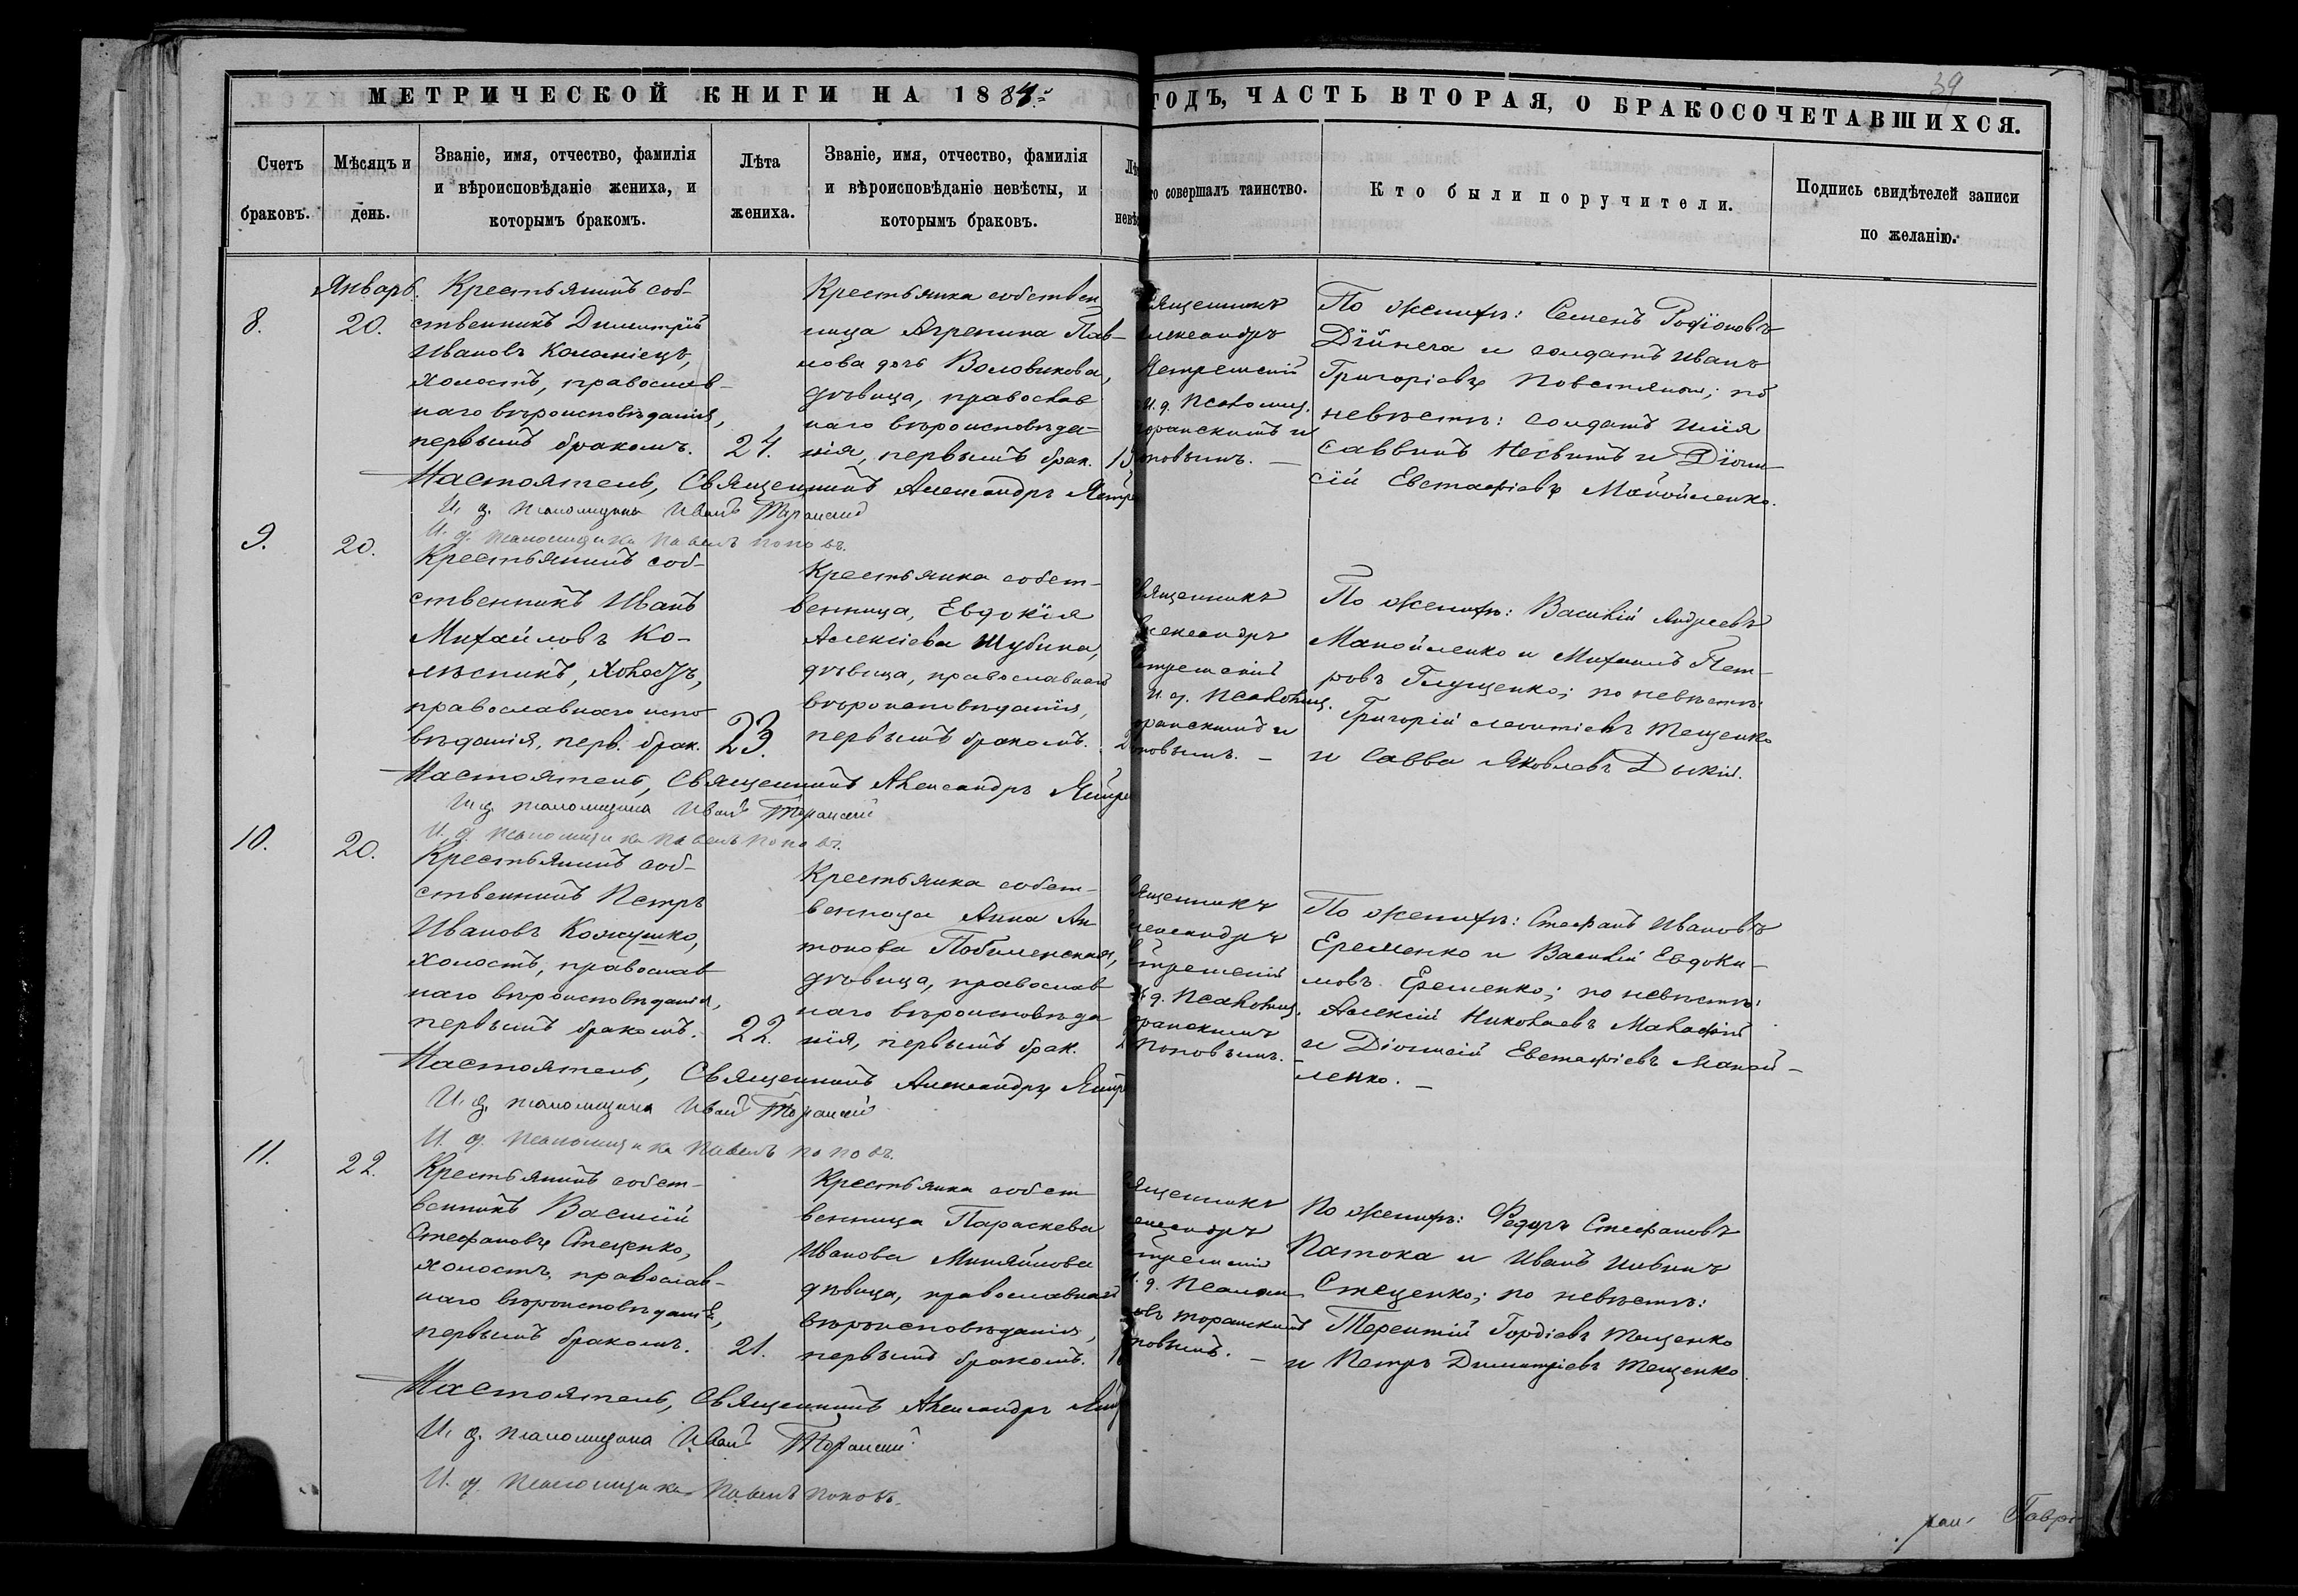 39
МЕТРИЧЕСКОЙ КНИГИ НА 1884
ГОДЪ, ЧАСТЬ ВТОРАЯ, О БРАКОСОЧЕТАВШИХСЯ.
Счетъ
браковъ.
Мѣсяцъ и
день.
Званіе, имя, отчество, фамилія
и вѣроисповѣданіе жениха, и
которымъ бракомъ.
Лѣта
жениха.
Званіе, имя, отчество, фамилія
и вѣроисповѣданіе невѣсты, и
которымъ браковъ.
Лѣ
невѣ
то совершалъ таинство.
Кто были поручители.
Подпись свидѣтелей записи
по желанію.
8.
Январь.
20.
Крестьянинъ соб-
ственникъ Димитрій
Ивановъ Коломіецъ,
холостъ, православ-
наго вѣроисповѣданія,
первымъ бракомъ.
24.
Крестьянка собствен-
ница Агрепина Пав-
лова дочь Воловикова,
дѣвица, православ
наго вѣроисповѣда-
нія, первымъ брак.
ященникъ
лександръ
И. д. Псаломщ.
оранскимъ и
оповымъ. —
По женихѣ: Семенъ Родіоновъ
Дійнега и солдатъ Иванъ
Григоріевъ ; по
невѣстѣ: солдатъ Илія
Саввинъ Несвитъ и Діони-
сій Евстафіевъ Манойленко.
Настоятель, Священникъ Александръ
И. д. псаломщика Иванъ Торанскій
И. д. псаломщика Павелъ Поповъ.
9.
20.
Крестьянинъ соб-
ственникъ Иванъ
Михайловъ Ко-
лѣсникъ, холостъ,
православнаго испо
вѣданія, перв. брак.
23.
Крестьянка собст-
венница, Евдокія
Алексіева Шубина,
дѣвица, православнаго
вѣроисповѣданія,
первымъ бракомъ.
вященникъ
лександръ
И. д. Псаломщ.
оранскимъ и
оповымъ. —
По женихѣ: Василій Андреевъ
Манойленко и Михаилъ Пет-
ровъ Глущенко; по невѣстѣ:
Григорій Леонтіевъ Тещенко
и Савва Яковлевъ Дикій.
Настоятель, Священникъ Александръ
И. д. псаломщика Иванъ Торанскій
И. д. псаломщика Павелъ Поповъ.
10.
20.
Крестьянинъ соб-
ственникъ Петръ
Ивановъ Кожушко,
холостъ, православ
наго вѣроисповѣданія,
первымъ бракомъ.
22.
Крестьянка собст-
венница Анна Ан
тонова
дѣвица, православ
наго вѣроисповѣда
нія, первымъ брак.
ященникъ
лександръ
И. д. Псаломщ.
оранскимъ
Поповымъ.
По женихѣ: Стефанъ Ивановъ
Еременко и Василій Евдоки-
мовъ Еременко; по невѣстѣ:
Алексій Николаевъ Малафій
и Діонисій Евстафіевъ Маной-
ленко. —
Настоятель, Священникъ Александръ
И. д. псаломщика Иванъ Торанскій
И. д. псаломщика Павелъ Поповъ.
11.
22.
Крестьянинъ собст-
венникъ Василій
Стефановъ Стеценко,
холостъ, православ-
наго вѣроисповѣданія,
первымъ бракомъ.
21.
Крестьянка собст
венница Параскева
Иванова
дѣвица, православнаго
вѣроисповѣданія,
первымъ бракомъ.
ященникъ
лександръ
И. д. Псалом
Торанскимъ
повымъ. —
По женихѣ: Федоръ Стефановъ
Патока и Иванъ
Стеценко; по невѣстѣ:
Терентій Гордіевъ Тещенко
и Петръ Димитріевъ Тещенко.
Настоятель, Священникъ Александръ
И. д. псаломщика Иванъ Торанскій
И. д. псаломщика Павелъ Поповъ.